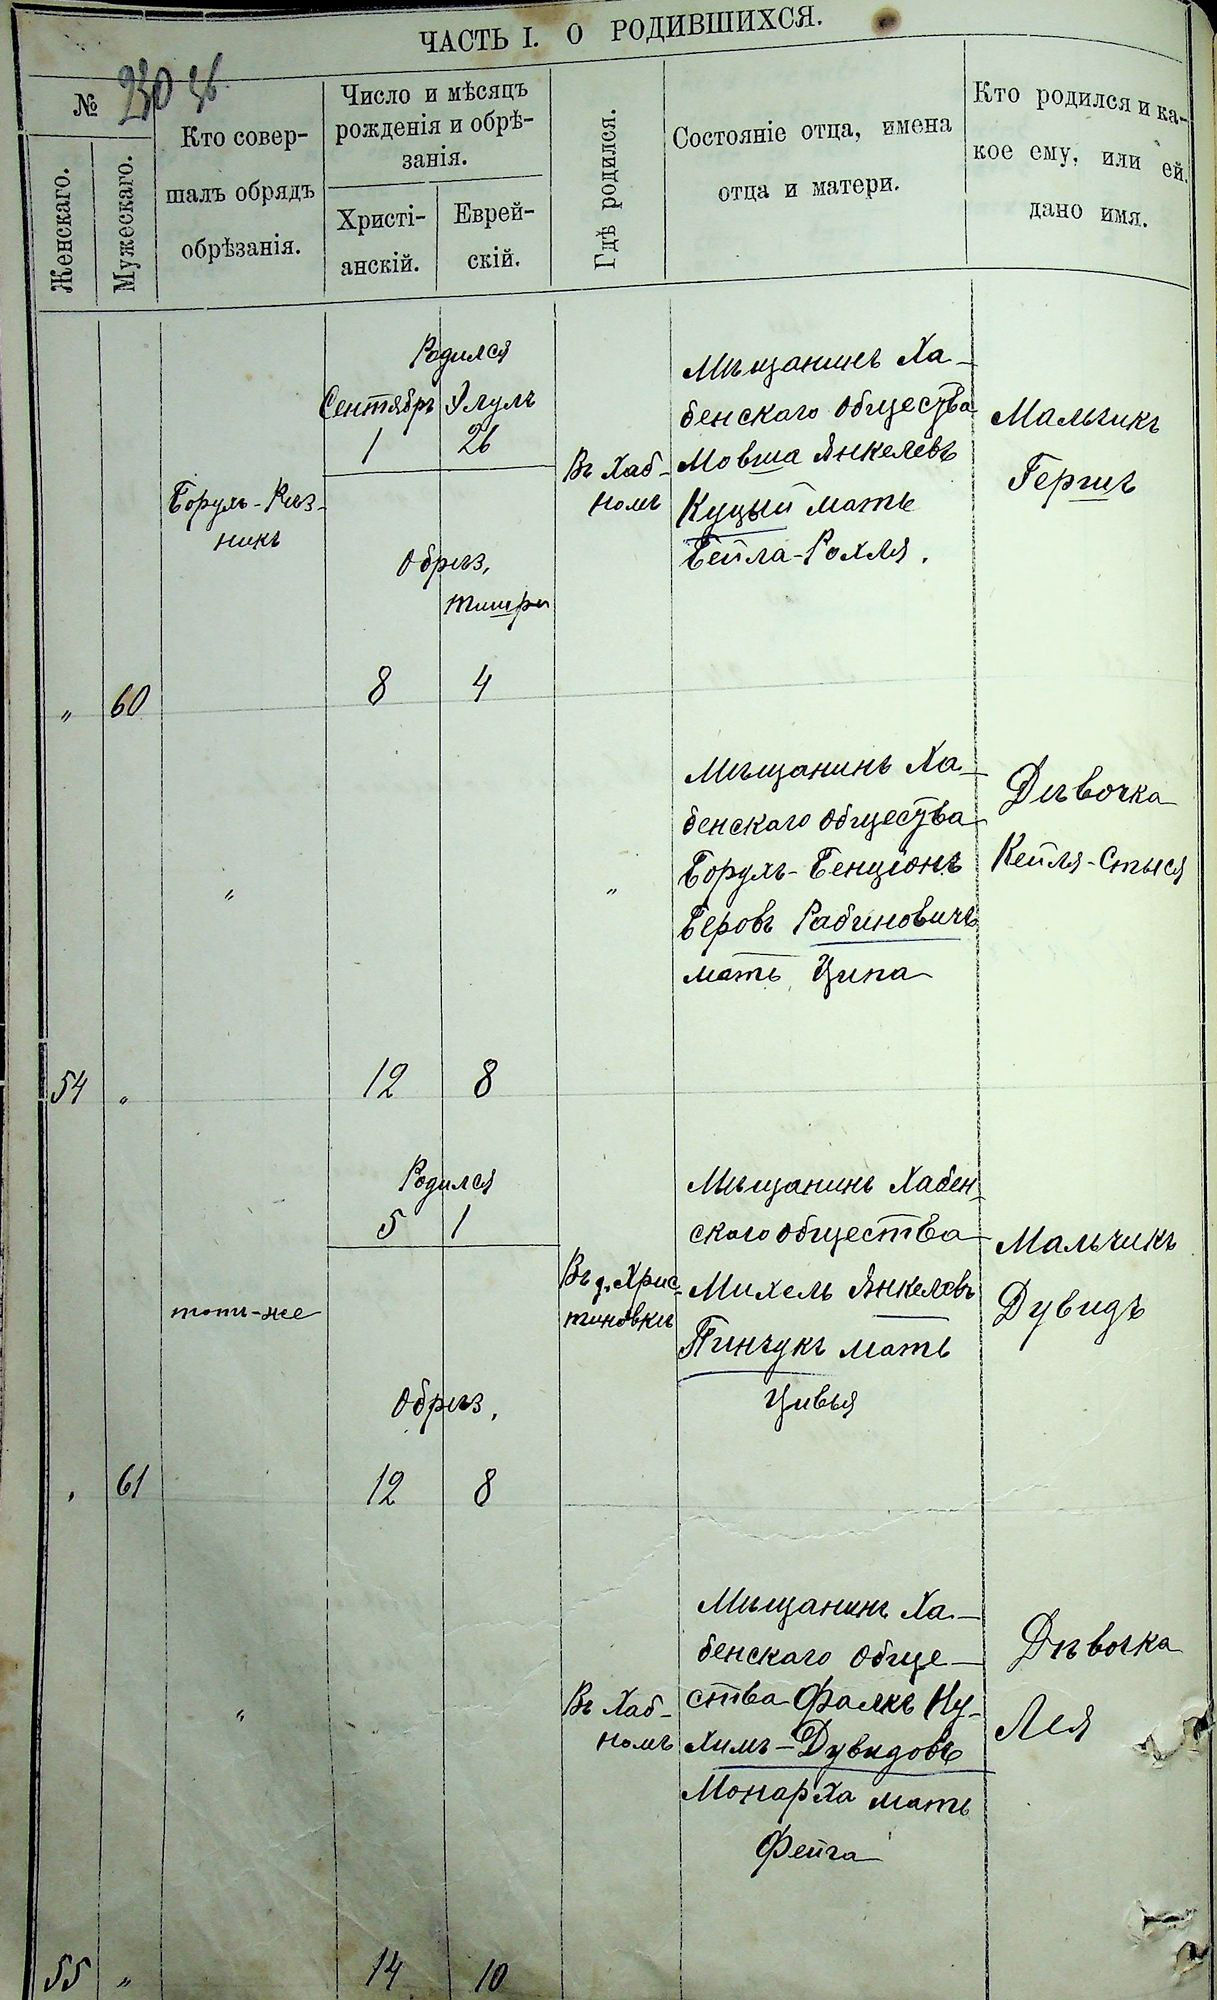 ЧАСТЬ I. О РОДИВШИХСЯ.
№
Женскаго.
Мужескаго.
Кто совер-
шалъ обрядъ
обрѣзанія.
Число и мѣсяцъ
рожденія и обрѣ-
занія.
Христі-
анскій.
Еврей-
скій.
Гдѣ родился.
Состояніе отца, имена
отца и матери.
Кто родился и ка-
кое ему, или ей
дано имя.
„ 60
Борухъ-Рѣз-
никъ
Родился
Сентябрь Элулъ
1 26
Обрѣз.
Тишри
8 4
Въ Хаб-
номъ
Мѣщанинъ Ха-
бенскаго общества
Мовша Янкелевъ
Куцый мать
Бейла-Рохля.
Мальчикъ
Гершъ
54 „
„
12 8
„
Мѣщанинъ Ха-
бенскаго общества
Борухъ-Бенціонъ
Беровъ Рабиновичъ
мать Ципа
Дѣвочка
Кейля-Стыся
„ 61
тотъ-же
Родился
5 1
Обрѣз.
12 8
Въ д. Хрис-
тиновкѣ
Мѣщанинъ Хабен-
скаго общества
Михель Янкелевъ
Пинчукъ мать
Цивья
Мальчикъ
Дувидъ
55 „
„
14 10
Въ Хаб-
номъ
Мѣщанинъ Ха-
бенскаго обще-
ства Фалкъ Ну-
химъ-Дувидовъ
Монарха мать
Фейга
Дѣвочка
Лея